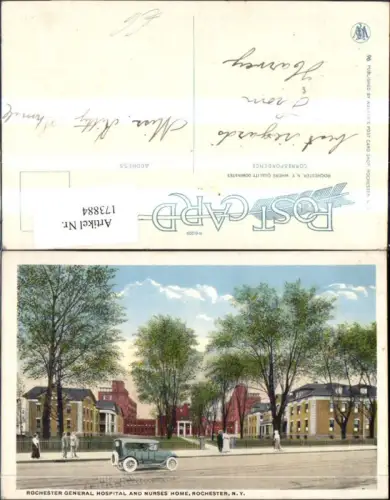 POST CARD
CORRESPONDENCE
ADDRESS
ROCHESTER, N. Y. WHERE QUALITY DOMINATES
best regards
from
Harvey
Miss Kitty
Artikel Nr.
173884
ROCHESTER GENERAL HOSPITAL AND NURSES' HOME, ROCHESTER, N. Y.